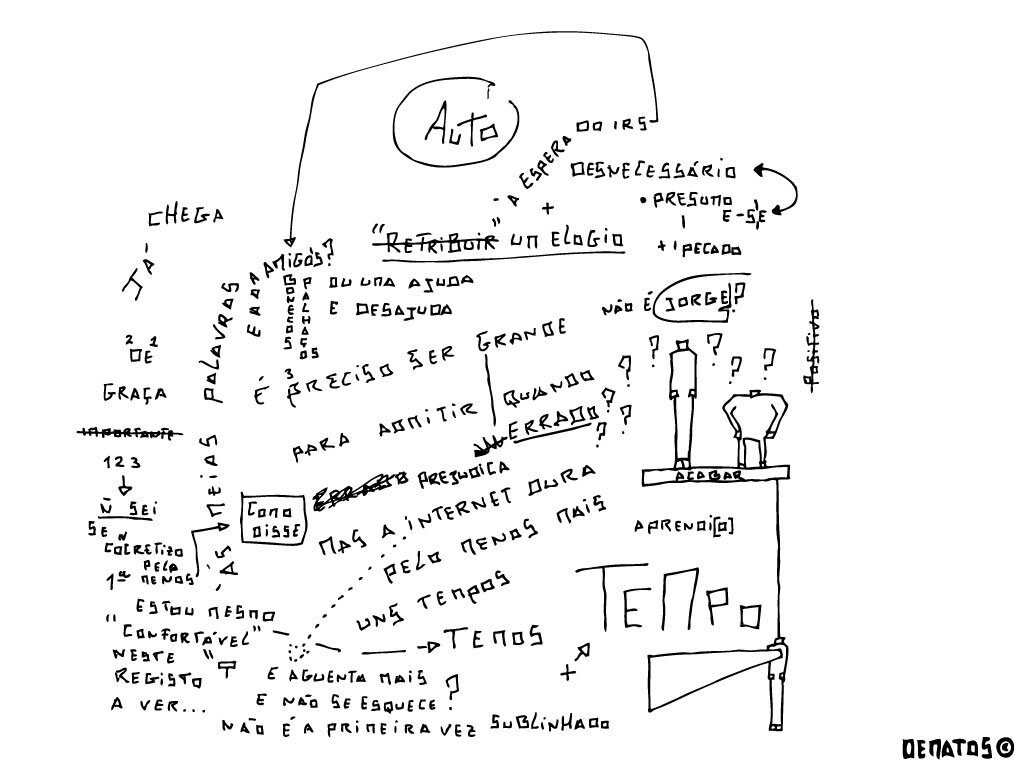 AUTO
À ESPERA DO IRS
DESNECESSÁRIO
• PRESUMO
E-SÉ
+ 1 PECADO
+
"RETRIBUIR" UM ELOGIO
OU UMA AJUDA
E DESAJUDA
CHEGA
JÁ
2 1
DE
GRAÇA
IMPORTANTE
1 2 3
Ñ SEI
SE Ñ
COCRETIZO
PELA
1ª MENOS
ÀS MEIAS PALAVRAS
ERA A AMIGOS?
BONECOS
PALHAÇOS
NÃO É JORGE?
POSITIVO
3
É PRECISO SER GRANDE
PARA ADMITIR QUANDO ?
ERRADO ? ?
? ? ? ? ?
COMO
DISSE
ERRADO PREJUDICA
MAS A INTERNET DURA
PELO MENOS MAIS
UNS TEMPOS
ACABAR
APRENDI[O]
TEMPO
"ESTOU MESMO
"CONFORTÁVEL"
NESTE "
REGISTO
A VER...
TEMOS
+
E AGUENTA MAIS
E NÃO SE ESQUECE ?
NÃO É A PRIMEIRA VEZ SUBLINHADO
DEMATOS ©